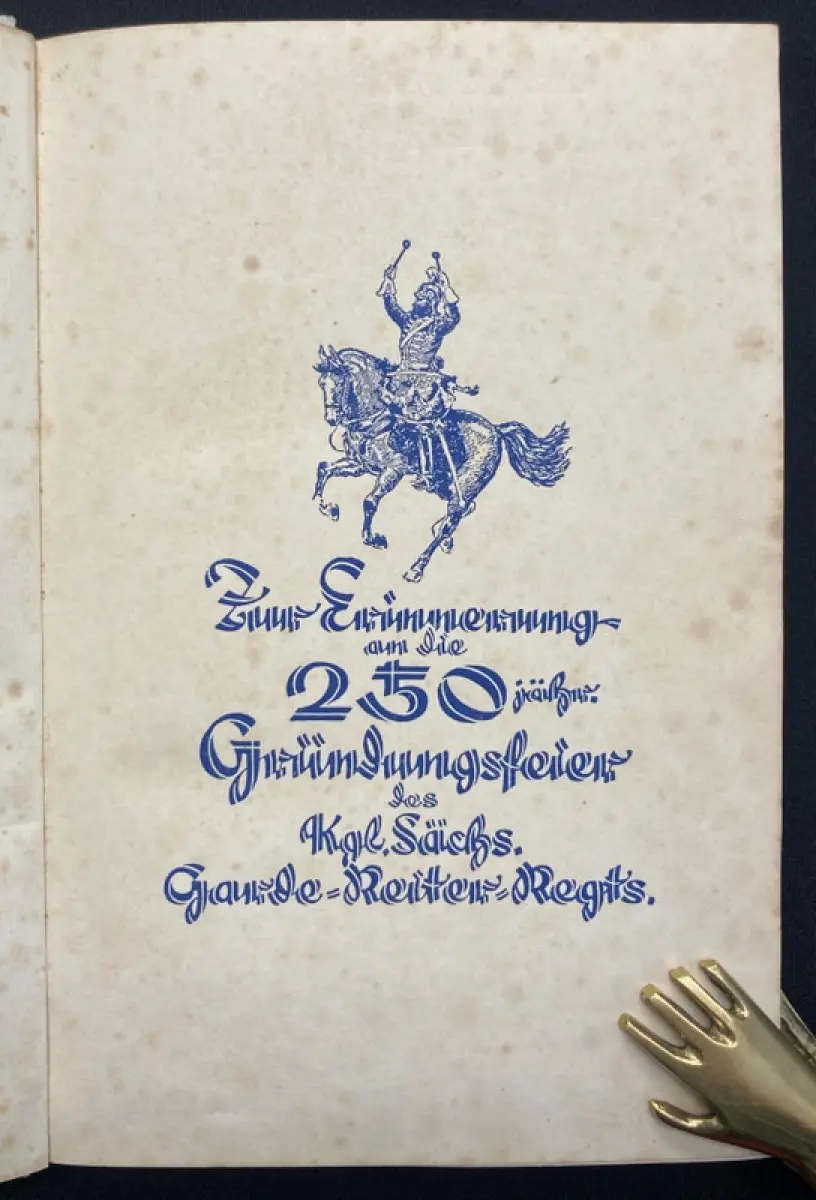 Zur Erinnerung
an die
250 jähr.
Gründungsfeier
des
Kgl. Sächs.
Garde-Reiter-Regts.